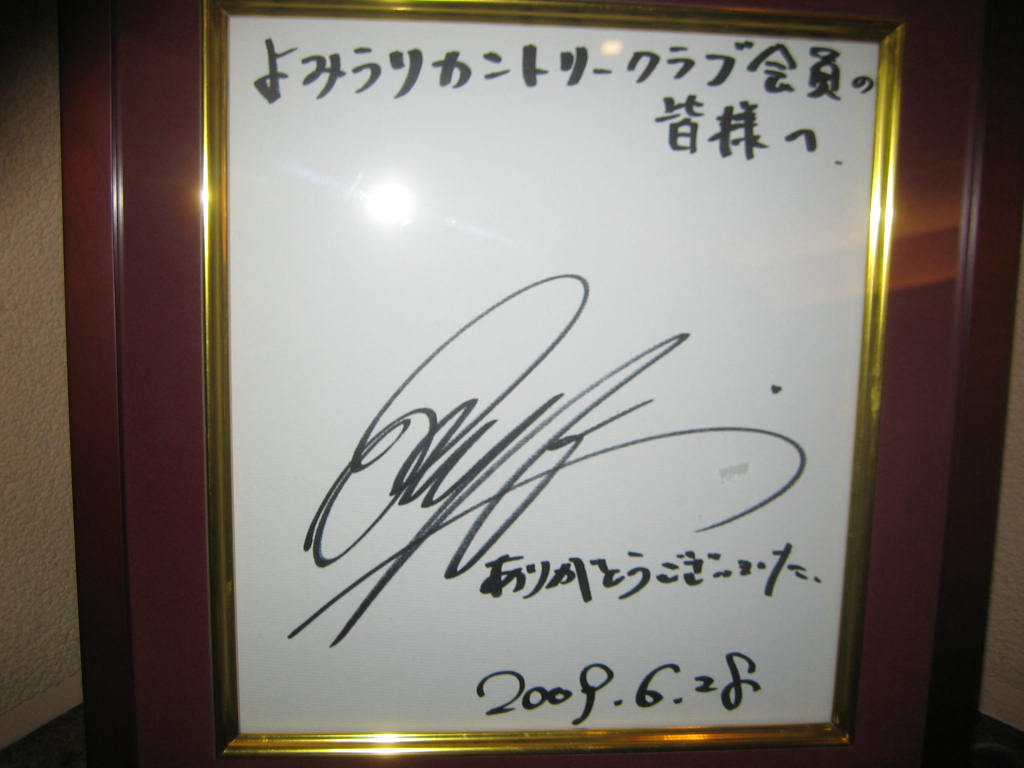 よみうりカントリークラブ会員の
皆様へ.
ありがとうございました.
2009.6.28